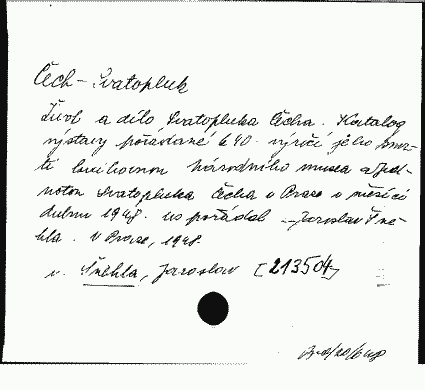 Čech - Svatopluk
Život a dílo Svatopluka Čecha. Katalog
výstavy pořádané k 40. výročí jeho smr-
ti knihovnou Národního musea a Jed-
notou Svatopluka Čecha v Praze v měsíci
dubnu 1948. uspořádal Jaroslav Šne-
hla. V Praze, 1948.
v. Šnehla, Jaroslav [213504]